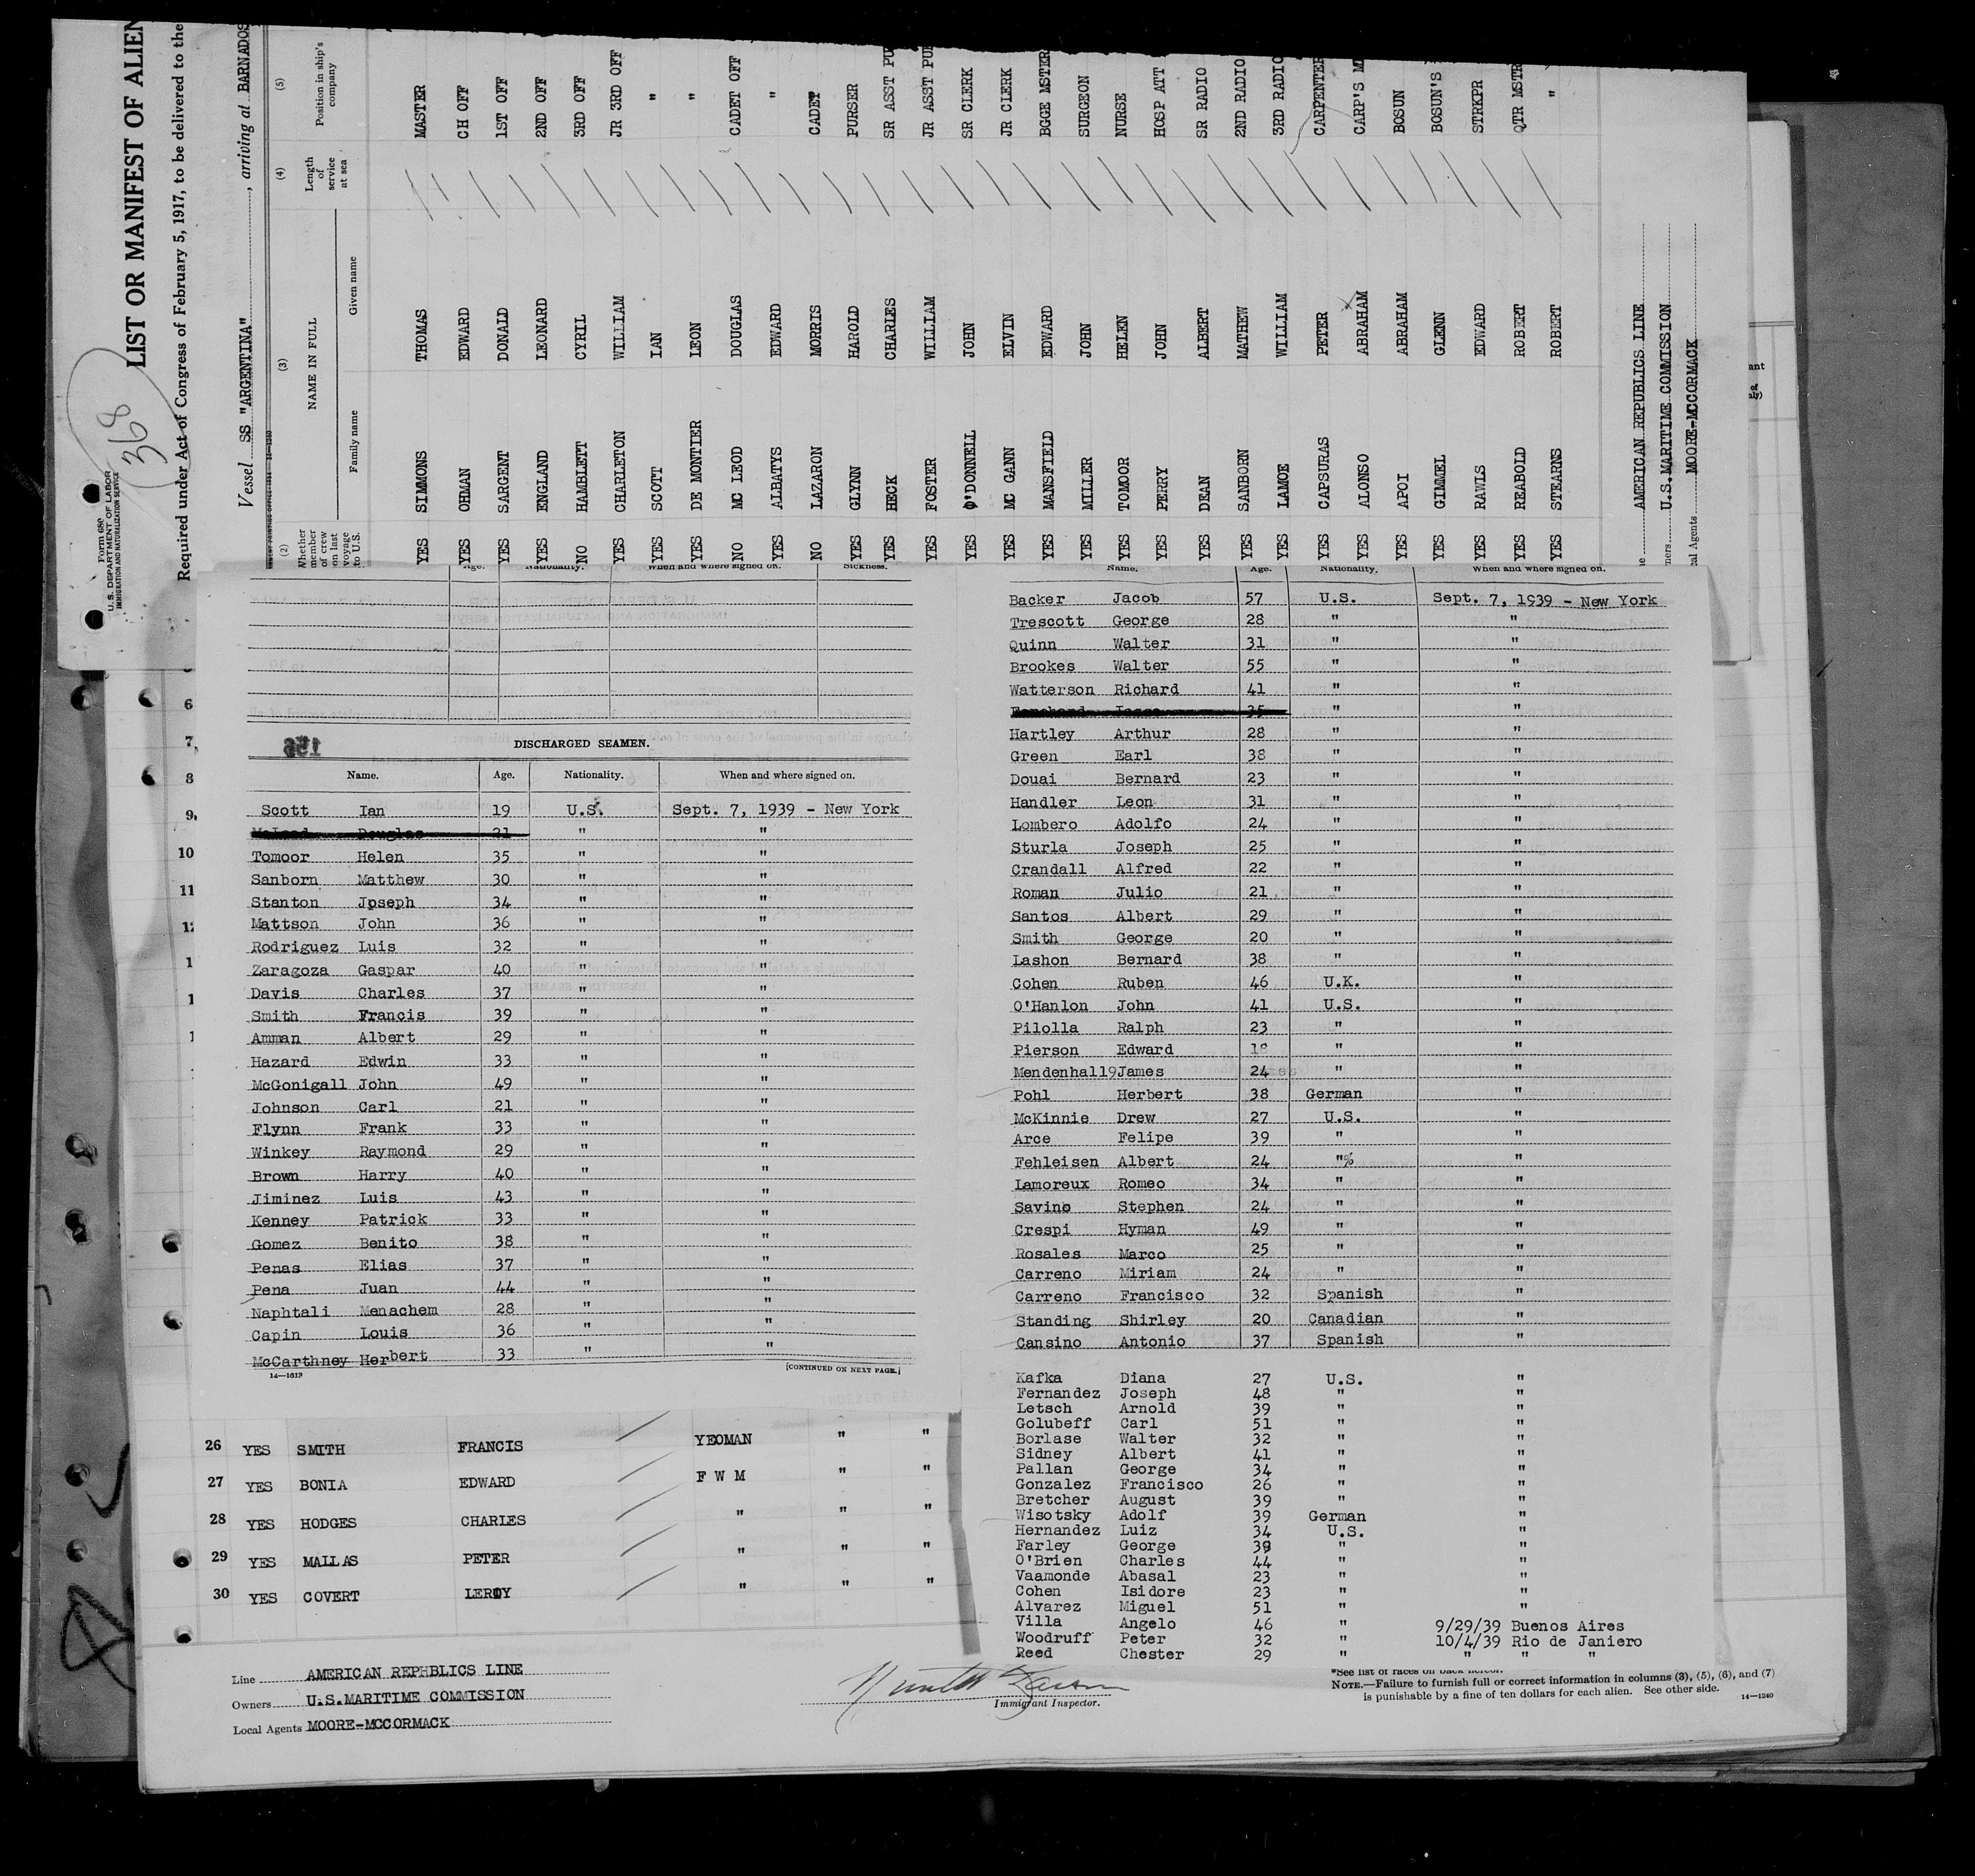 Form 680
U. S. DEPARTMENT OF LABOR
IMMIGRATION AND NATURALIZATION SERVICE
368
LIST OR MANIFEST OF ALIEN
Required under Act of Congress of February 5, 1917, to be delivered to the
Vessel SS "ARGENTINA", arriving at BARNADOS
(2) (3) (4) (5)
Whether member of crew on last voyage to U.S. NAME IN FULL Length of service at sea Position in ship's company
Family name Given name
YES SIMMONS THOMAS MASTER
YES OHMAN EDWARD CH OFF
YES SARGENT DONALD 1ST OFF
YES ENGLAND LEONARD 2ND OFF
NO HAMBLETT CYRIL 3RD OFF
YES CHARLETON WILLIAM JR 3RD OFF
YES SCOTT IAN "
YES DE MONTIER LEON "
NO MC LEOD DOUGLAS CADET OFF
YES ALBATYS EDWARD "
NO LAZARON MORRIS CADET
YES GLYNN HAROLD PURSER
YES HECK CHARLES SR ASST PU
YES FOSTER WILLIAM JR ASST PU
YES O'DONNELL JOHN SR CLERK
YES MC GANN ELVIN JR CLERK
YES MANSFIELD EDWARD BGGE MSTER
YES MILLER JOHN SURGEON
YES TOMOOR HELEN NURSE
YES PERRY JOHN HOSP ATT
YES DEAN ALBERT SR RADIO
YES SANBORN MATHEW 2ND RADIO
YES LAMOE WILLIAM 3RD RADIO
YES CAPSURAS PETER CARPENTER
YES ALONSO ABRAHAM CARP'S M
YES APOI ABRAHAM BOSUN
YES GIMMEL GLENN BOSUN'S
YES RAWLS EDWARD STRKPR
YES REABOLD ROBERT QTR MSTR
YES STEARNS ROBERT "
AMERICAN REPUBLICS LINE
U.S.MARITIME COMMISSION
al Agents MOORE-MCCORMACK
Age. Nationality. When and where signed on. Sickness.
DISCHARGED SEAMEN.
Name. Age. Nationality. When and where signed on.
Scott Ian 19 U.S. Sept. 7, 1939 - New York
McLeod Douglas 21 " "
Tomoor Helen 35 " "
Sanborn Matthew 30 " "
Stanton Joseph 34 " "
Mattson John 36 " "
Rodriguez Luis 32 " "
Zaragoza Gaspar 40 " "
Davis Charles 37 " "
Smith Francis 39 " "
Amman Albert 29 " "
Hazard Edwin 33 " "
McGonigall John 49 " "
Johnson Carl 21 " "
Flynn Frank 33 " "
Winkey Raymond 29 " "
Brown Harry 40 " "
Jiminez Luis 43 " "
Kenney Patrick 33 " "
Gomez Benito 38 " "
Penas Elias 37 " "
Pena Juan 44 " "
Naphtali Menachem 28 " "
Capin Louis 36 " "
McCarthney Herbert 33 " "
14—1613 [CONTINUED ON NEXT PAGE.]
Name. Age. Nationality. When and where signed on.
Backer Jacob 57 U.S. Sept. 7, 1939 - New York
Trescott George 28 " "
Quinn Walter 31 " "
Brookes Walter 55 " "
Watterson Richard 41 " "
35 " "
Hartley Arthur 28 " "
Green Earl 38 " "
Douai Bernard 23 " "
Handler Leon 31 " "
Lombero Adolfo 24 " "
Sturla Joseph 25 " "
Crandall Alfred 22 " "
Roman Julio 21 " "
Santos Albert 29 " "
Smith George 20 " "
Lashon Bernard 38 " "
Cohen Ruben 46 U.K. "
O'Hanlon John 41 U.S. "
Pilolla Ralph 23 " "
Pierson Edward 18 " "
Mendenhall9James 24 " "
Pohl Herbert 38 German "
McKinnie Drew 27 U.S. "
Arce Felipe 39 " "
Fehleisen Albert 24 "% "
Lamoreux Romeo 34 " "
Savino Stephen 24 " "
Crespi Hyman 49 " "
Rosales Marco 25 " "
Carreno Miriam 24 " "
Carreno Francisco 32 Spanish "
Standing Shirley 20 Canadian "
Cansino Antonio 37 Spanish "
Kafka Diana 27 U.S. "
Fernandez Joseph 48 " "
Letsch Arnold 39 " "
Golubeff Carl 51 " "
Borlase Walter 32 " "
Sidney Albert 41 " "
Pallan George 34 " "
Gonzalez Francisco 26 " "
Bretcher August 39 " "
Wisotsky Adolf 39 German "
Hernandez Luiz 34 U.S. "
Farley George 39 " "
O'Brien Charles 44 " "
Vaamonde Abasal 23 " "
Cohen Isidore 23 " "
Alvarez Miguel 51 " "
Villa Angelo 46 " 9/29/39 Buenos Aires
Woodruff Peter 32 " 10/4/39 Rio de Janiero
Reed Chester 29 " " " "
6
7
8
9
10
11
26 YES SMITH FRANCIS YEOMAN " "
27 YES BONIA EDWARD F W M " "
28 YES HODGES CHARLES " " "
29 YES MALLAS PETER " " "
30 YES COVERT LEROY " " "
Line AMERICAN REPHBLICS LINE
Owners U.S.MARITIME COMMISSION
Local Agents MOORE-MCCORMACK
Immigrant Inspector.
*See list of races on back hereof.
NOTE.—Failure to furnish full or correct information in columns (3), (5), (6), and (7)
is punishable by a fine of ten dollars for each alien. See other side.
14—1240